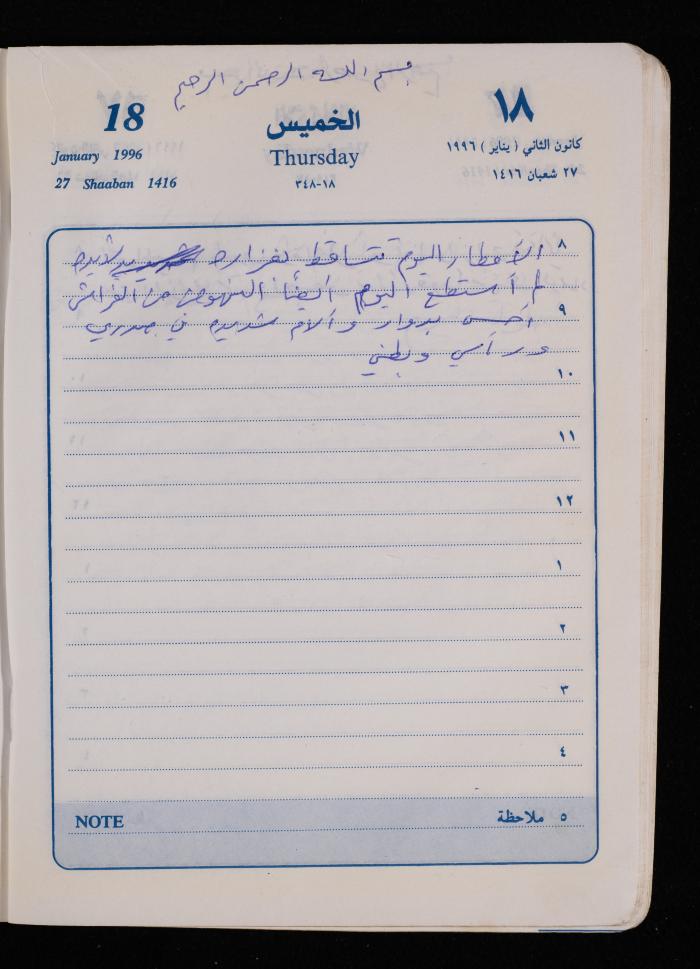 بسم الله الرحمن الرحيم
18
الخميس
١٨
January 1996
Thursday
كانون الثاني ( يناير ) ١٩٩٦
27 Shaaban 1416
٣٤٨-١٨
٢٧ شعبان ١٤١٦
٨
الأمطار اليوم تتساقط بغزاره شديده
لم أستطع اليوم أيضًا النهوض من الفراش
٩
أحس بدوار وآلام شديده في صدري
ورأسي وبطني
١٠
١١
١٢
١
٢
٣
٤
NOTE
٥ ملاحظة